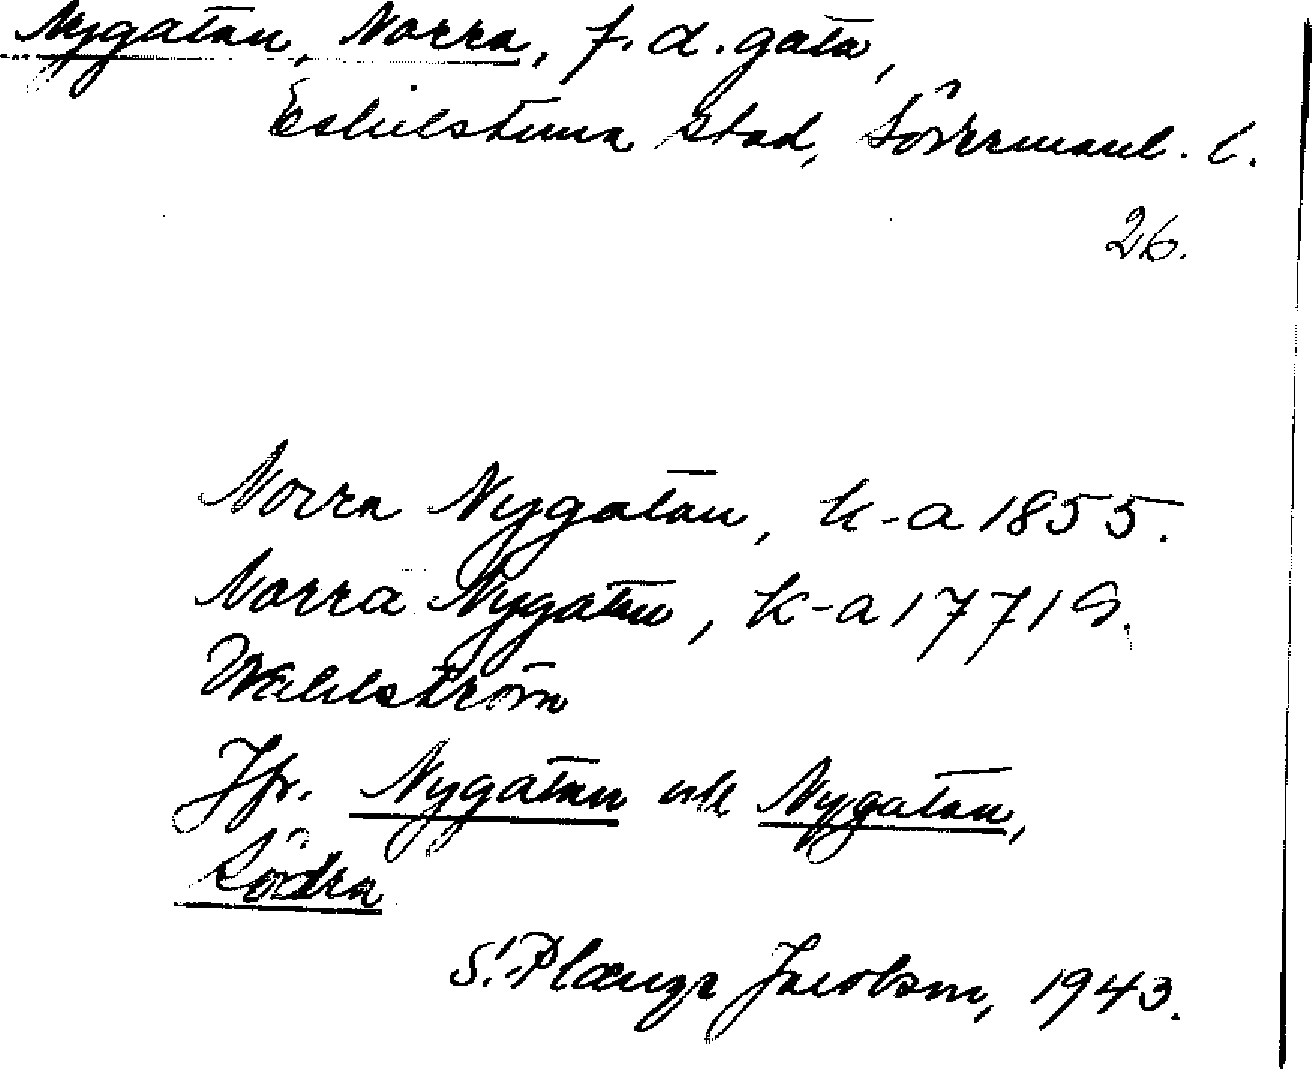 Nygatan, Norra, f.d. gata,
Eskilstuna stad, Södermanl. l.
26.
Norra Nygatan, k-a 1855.
Norra Nygatan, k-a 1771 S.
Wahlström
Jfr. Nygatan och Nygatan,
Södra
S. Plænge Jacobson, 1943.